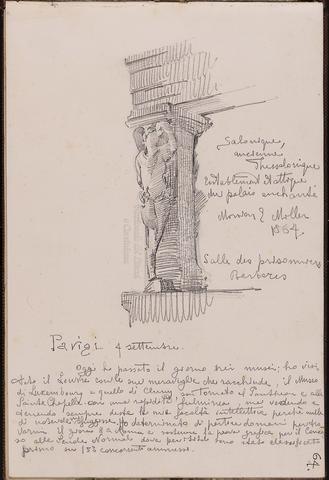 Salonique,
ancienne
Thessalonique
Entablement Attique
du palais enchanté
Monsieur E Miller
1864.
Salle des prisonniers
Barbares
Parigi 4 settembre.
Oggi ho passato il giorno nei musei; ho visi-
tato il Louvre con le sue meraviglie che racchiude, il Museo
di Luxembourg e quello di Cluny, son tornato al Pantheon e alla
Sainte Chapelle con una rapidità fulminea, ma vedendo e
tenendo sempre deste le mie facoltà intellettive perchè nulla
di notevole mi sfuggisse. Ho determinato di partire domani per
il giorno a Roma e sostenere la prova grafica per il Concor-
so alle Scuole Normali dove
primo sui 153 concorrenti ammessi.
64.